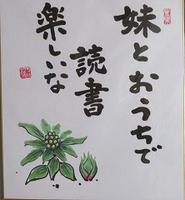 妹とおうちで
読書
楽しいな